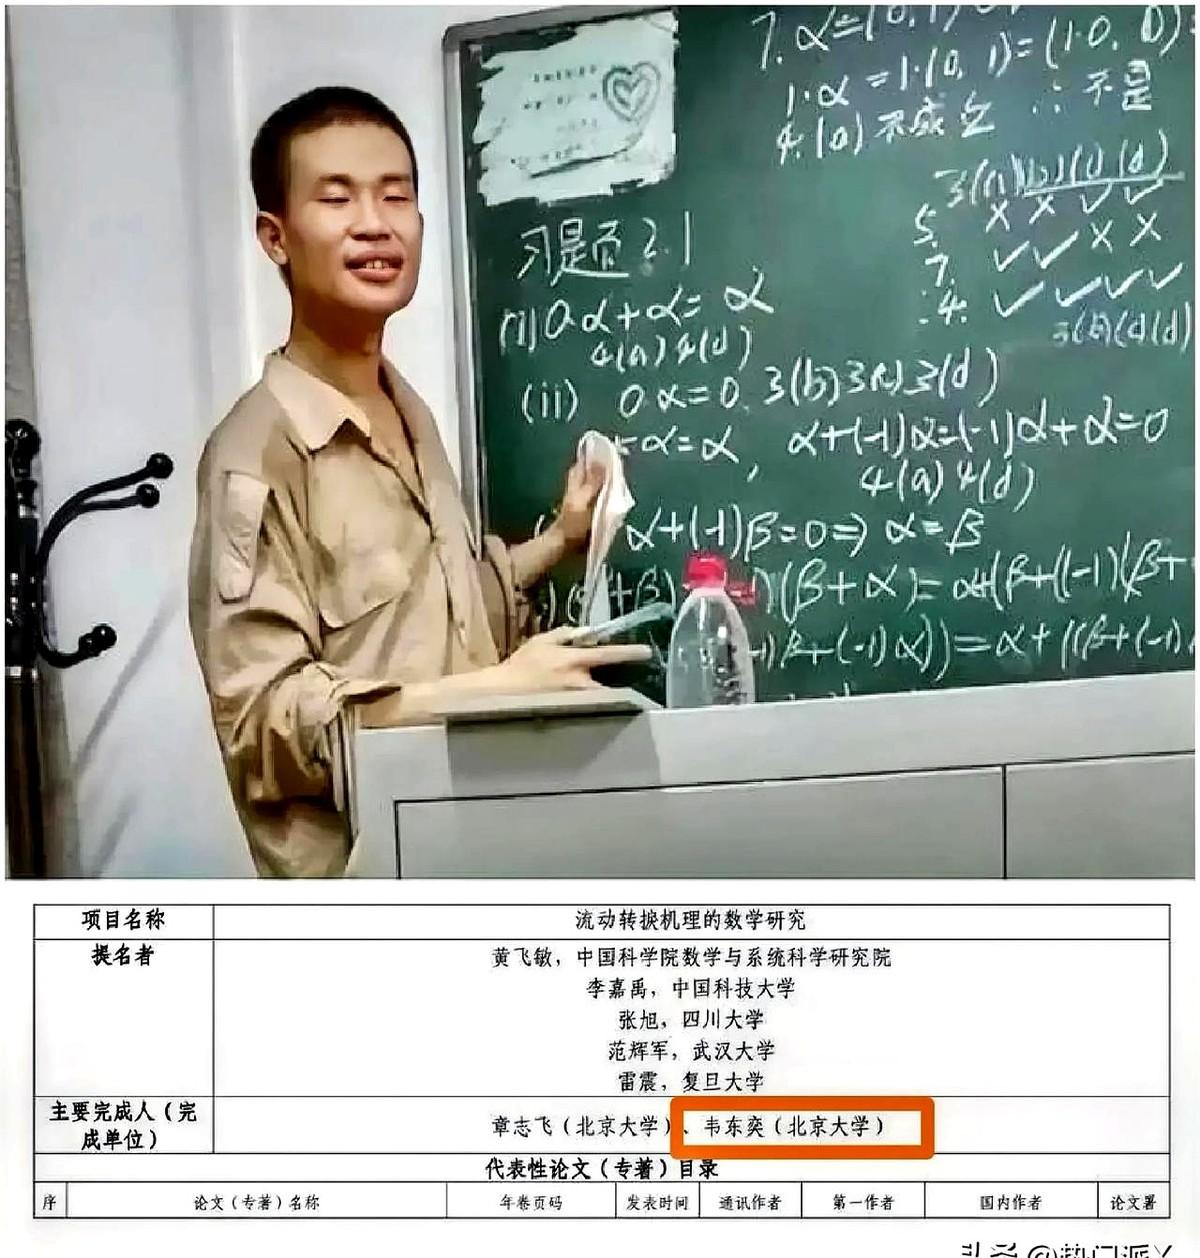 7. α=(0,1)
1·α=1·(0,1)=(1·0,0)
4.(a)不成立 ∴不是
3(a)(b)(c)(d)
5. × × ✓ ✓
7. ✓ ✓ × ×
4. ✓ ✓ ✓ ✓
3(b)(d(d)
习题2.1
(i) 0α+α=α
4(a)4(d)
(ii) 0α=0. 3(b)3(c)3(d)
α=α, α+(-1)α=(-1)α+α=0
4(a)4(d)
α+(-1)β=0⇒α=β
+β) )(β+α)=α+(β+((-1)(β+
)β+(-1)α))=α+((β+(-1)
项目名称 流动转捩机理的数学研究
提名者 黄飞敏，中国科学院数学与系统科学研究院
李嘉禹，中国科技大学
张旭，四川大学
范辉军，武汉大学
雷震，复旦大学
主要完成人（完成单位） 章志飞（北京大学）、韦东奕（北京大学）
代表性论文（专著）目录
序 论文（专著）名称 年卷页码 发表时间 通讯作者 第一作者 国内作者 论文署